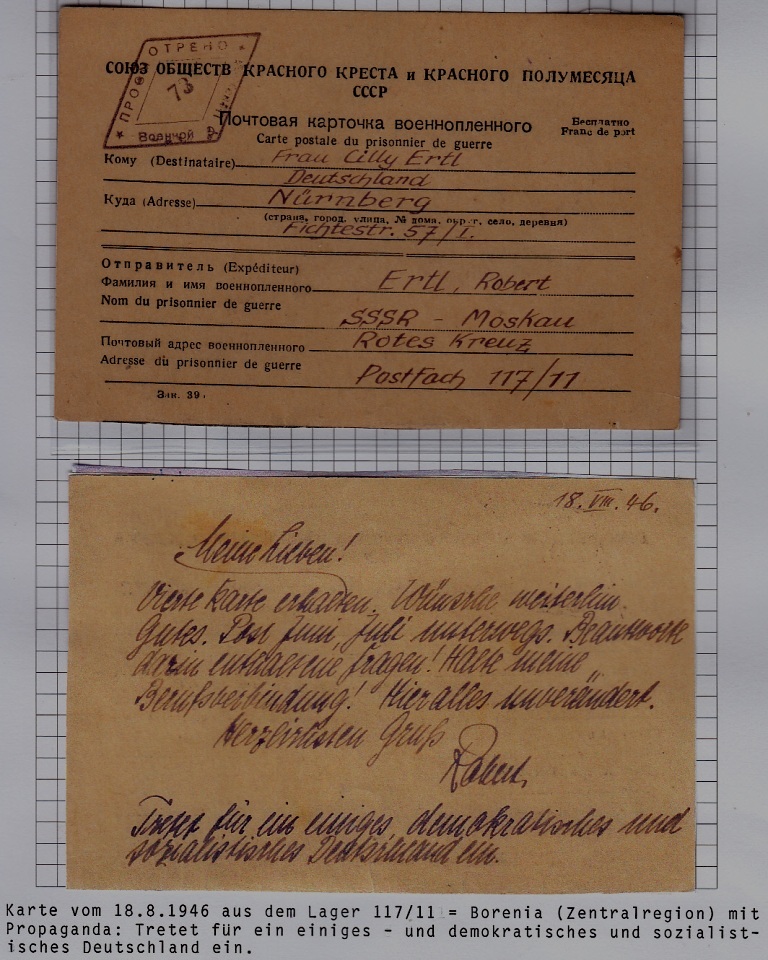 ПРОСМОТРЕНО
73
Военной
СОЮЗ ОБЩЕСТВ КРАСНОГО КРЕСТА и КРАСНОГО ПОЛУМЕСЯЦА
СССР
Почтовая карточка военнопленного
Бесплатно
Franc de port
Carte postale du prisonnier de guerre
Кому (Destinataire) Frau Cilly Ertl
Deutschland
Куда (Adresse) Nürnberg
(страна, город, улица, № дома, округ, село, деревня)
Fichtestr. 57/I.
Отправитель (Expéditeur)
Фамилия и имя военнопленного Ertl, Robert
Nom du prisonnier de guerre
SSSR - Moskau
Почтовый адрес военнопленного Rotes Kreuz
Adresse du prisonnier de guerre
Postfach 117/11
Зак. 39.
18. VIII. 46.
Meine Lieben!
Vierte Karte erhalten. Wünsche weiterhin
Gutes. Post Juni, Juli unterwegs. Beantworte
darin enthaltene Fragen! Halte meine
Berufsverbindung! Hier alles unverändert.
Herzlichsten Gruß
Robert.
Tretet für ein einiges, demokratisches und
sozialistisches Deutschland ein.
Karte vom 18.8.1946 aus dem Lager 117/11 = Borenia (Zentralregion) mit
Propaganda: Tretet für ein einiges - und demokratisches und sozialist-
isches Deutschland ein.